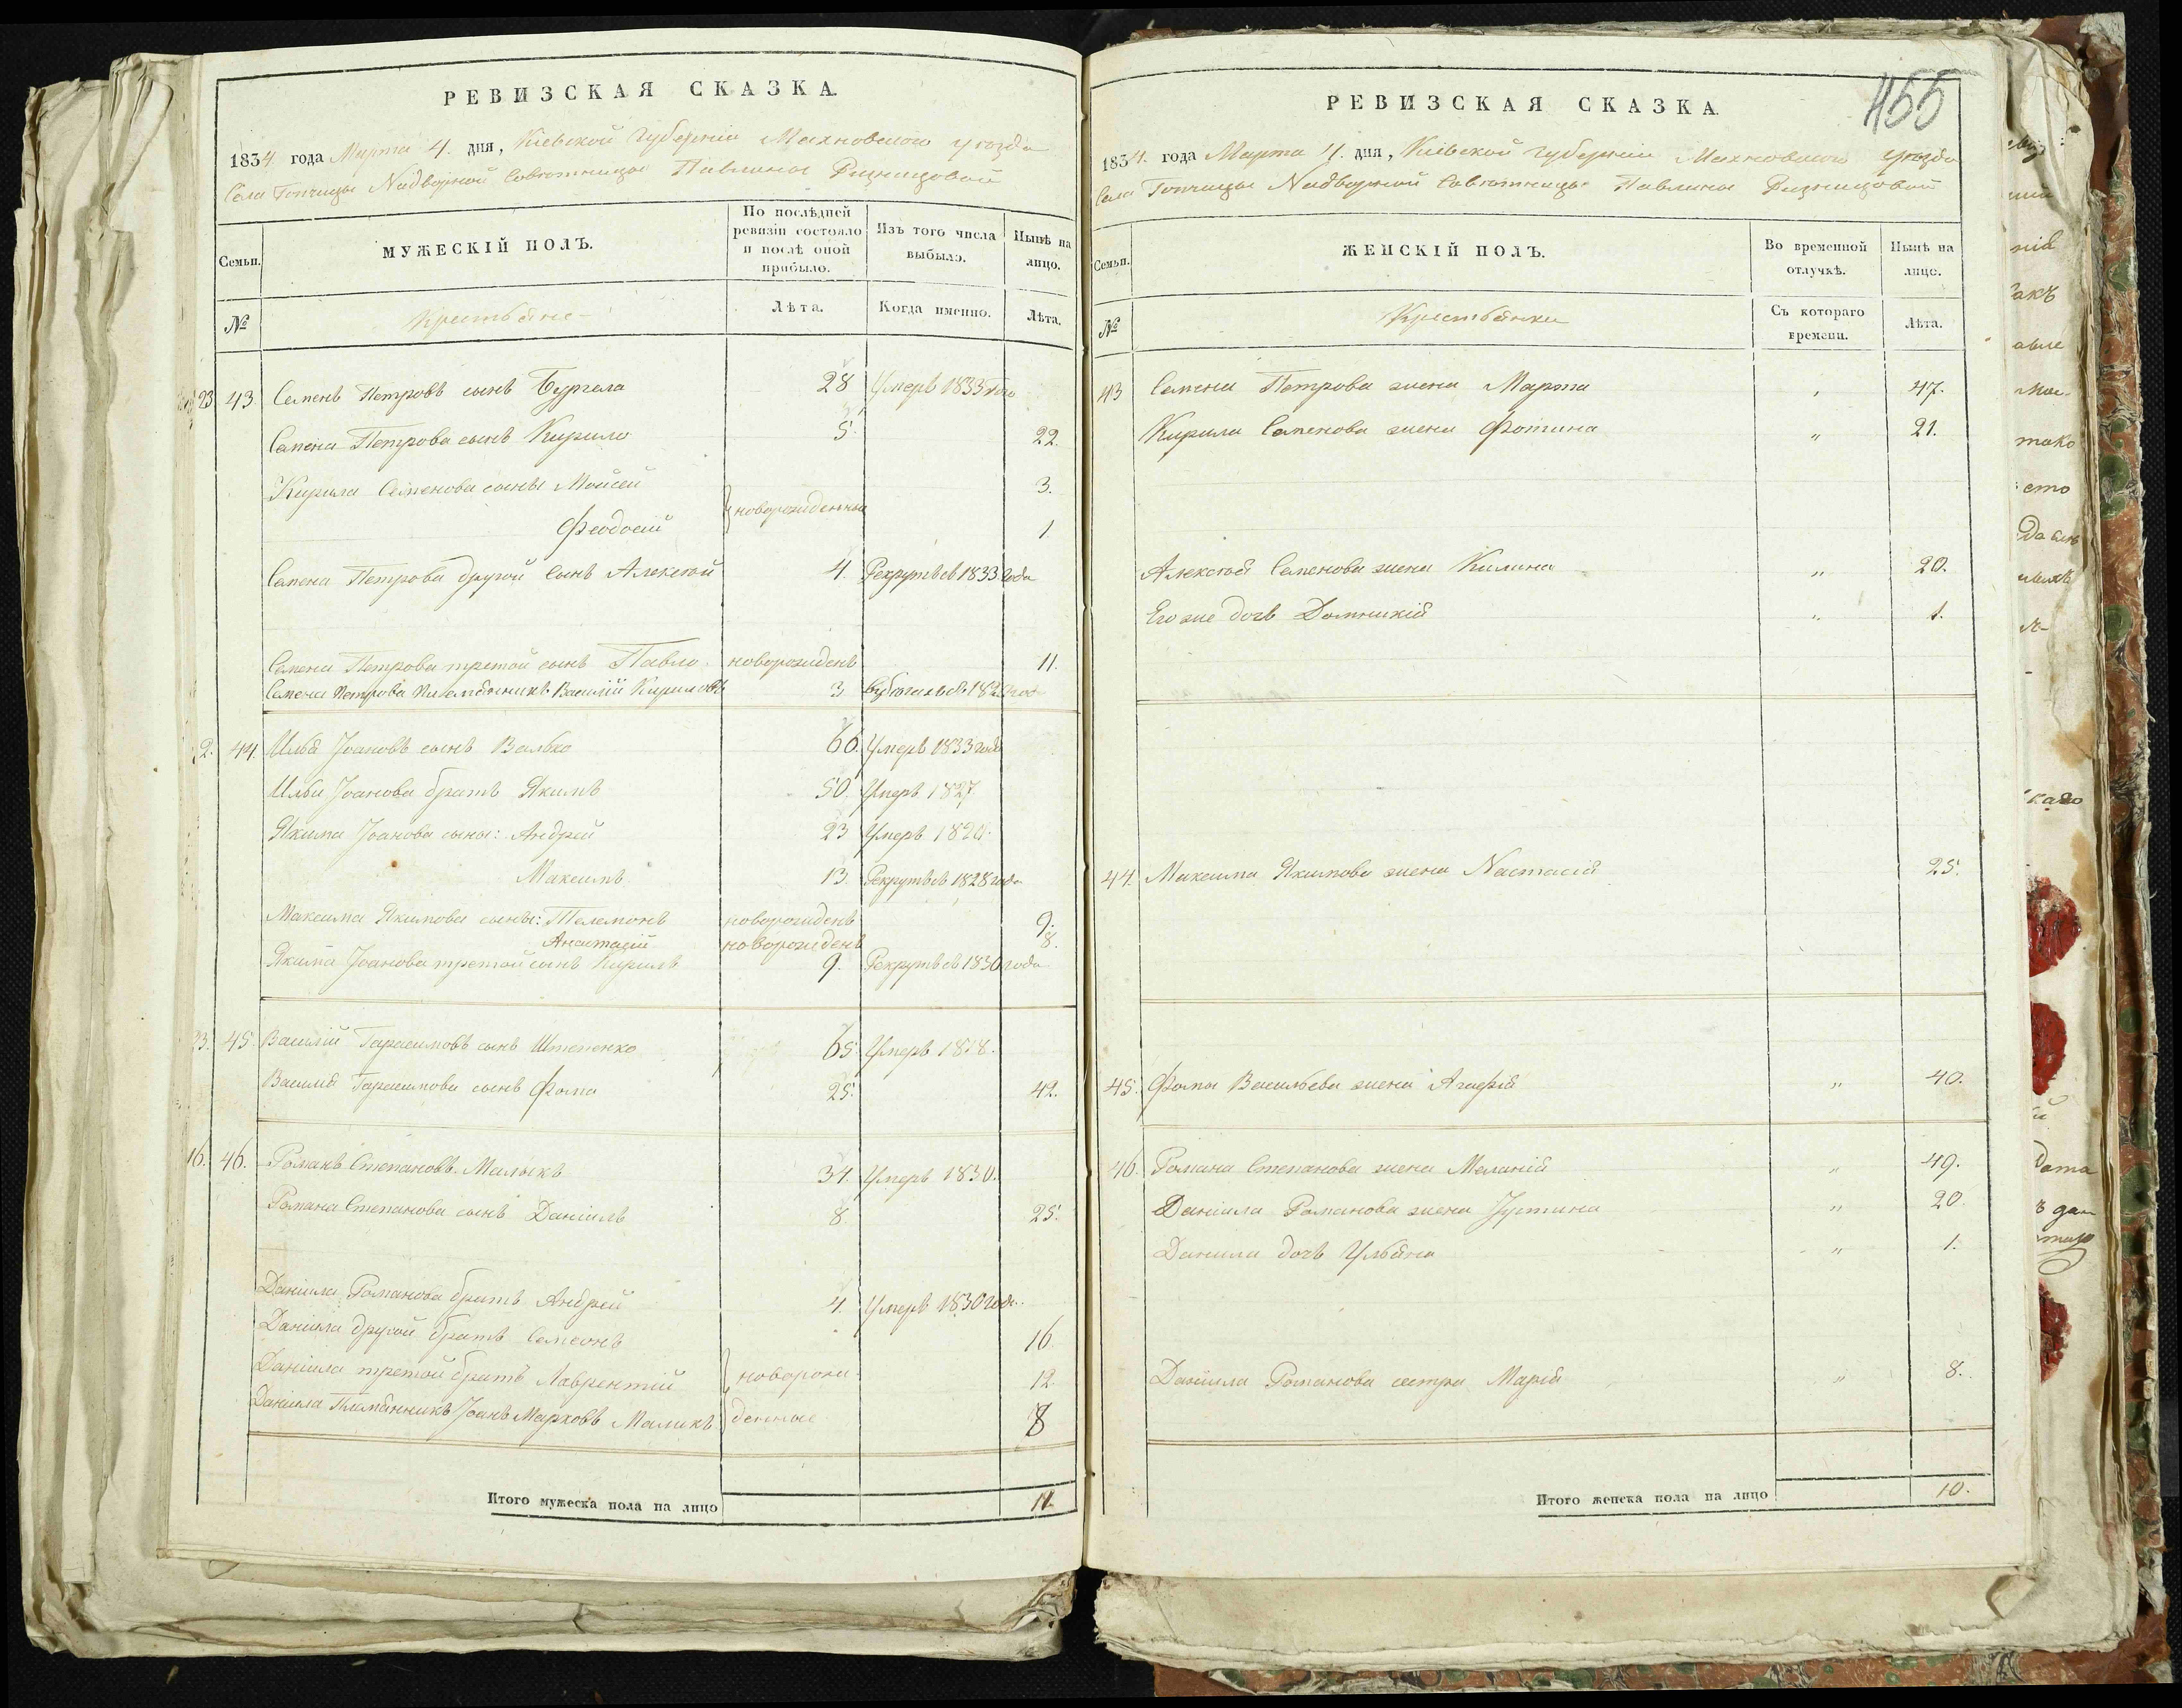 РЕВИЗСКАЯ СКАЗКА.
1834 года Марта 4. дня, Кіевской Губерніи Махновского уѣзда
Села Топчицы Надворной Совѣтницы Павлины
По послѣдней ревизіи состояло и послѣ оной прибыло.
Изъ того числа выбыло.
Нынѣ на лицо.
Семьи.
МУЖЕСКІЙ ПОЛЪ.
№
Крестьяне
Лѣта.
Когда именно.
Лѣта.
23 43 Семенъ Петровъ сынъ Бургела 28 Умеръ 1833 года
Семена Петрова сынъ Кирило 5. 22.
Кирила Семенова сыны Мойсей 3.
новорожденные
Феодосій 1
Семена Петрова другой сынъ Алексѣй 4. Рекрутъ съ 1833 года
Семена Петрова третой сынъ Павло. новорожденъ 11.
Семена Петрова племянникъ Василій Кириловъ 3
2. 44. Илья Іоановъ сынъ Валько 60. Умеръ 1833 года
Ильи Іоанова братъ Якимъ 50. Умеръ 1827
Якима Іоанова сыны: Андрей 23 Умеръ
Максимъ 13. Рекрутъ съ 1828 года
Максима Якимова сыны: Телемонъ новорожденъ 9.
Анастасій новорожденъ 8.
Якима Іоанова третой сынъ Кирилъ 9. Рекрутъ съ 1830 года
33. 45. Василій Гарасимовъ сынъ Штепенко 65. Умеръ 1818.
Василія Гарасимова сынъ Фома 25. 42.
16. 46. Романъ Степановъ Малыкъ 34. Умеръ 1830.
Романа Степанова сынъ Даніилъ 8 25.
Даніила Романова братъ Андрей 4. Умеръ 1830 года.
Даніила другой братъ Семеонъ 16.
Даніила третой братъ Лаврентій новорож- 12.
Даніила Племянникъ Іоанъ Марковъ Маликъ денные 8
Итого мужеска пола на лицо 11.
455
РЕВИЗСКАЯ СКАЗКА.
1834. года Марта 4. дня, Кіевской Губерніи Махновского уѣзда
Села Топчицы Надворной Совѣтницы Павлины
Семьи.
ЖЕНСКІЙ ПОЛЪ.
Во временной отлучкѣ.
Нынѣ на лицо.
№
Крестьянки
Съ котораго времени.
Лѣта.
43 Семена Петрова жена Марта " 47.
Кирила Семенова жена Фотина " 21.
Алексѣя Семенова жена Килина " 20.
Его же дочь Домникія " 1.
44. Максима Якимова жена Настасія 25.
45. Фомы Васильева жена Агафія " 40.
46. Романа Степанова жена Меланія " 49.
Даніила Романова жена Іустина " 20.
Данила дочь Ульяна " 1.
Даніила Романова сестра Марія " 8.
Итого женска пола на лицо 10.